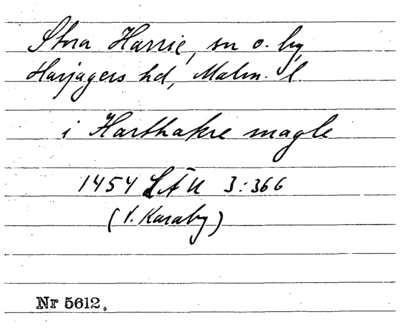 Stora Harrie, sn o. by,
Harjagers hd, Malm. l.
i Harthakre magle
1454 LÄU 3:366
(V. Karaby)
Nr 5612.